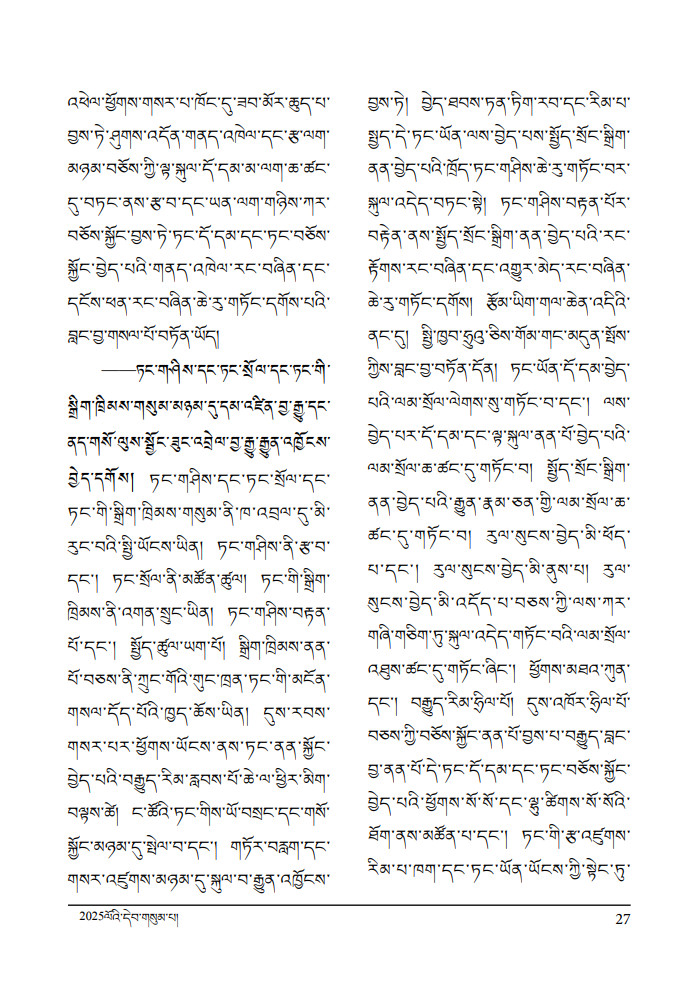 འཕེལ་ཕྱོགས་གསར་པ་ཁོང་དུ་ཟབ་མོར་ཆུད་པ་
བྱས་ཏེ་ཤུགས་འདོན་གནད་འཁེལ་དང་རྩ་ལག་
མཉམ་བཅོས་ཀྱི་ལྟ་སྐུལ་དོ་དམ་མ་ལག་ཆ་ཚང་
དུ་བཏང་ནས་རྩ་བ་དང་ཡན་ལག་གཉིས་ཀར་
བཅོས་སྐྱོང་བྱས་ཏེ་ཏང་དོ་དམ་དང་ཏང་བཅོས་
སྐྱོང་བྱེད་པའི་གནད་འཁེལ་རང་བཞིན་དང་
དངོས་ཕན་རང་བཞིན་ཆེ་རུ་གཏོང་དགོས་པའི་
བླང་བྱ་གསལ་པོ་བཏོན་ཡོད།
——ཏང་གཤིས་དང་ཏང་སྲོལ་དང་ཏང་གི་
སྒྲིག་ཁྲིམས་གསུམ་མཉམ་དུ་དམ་འཛིན་བྱ་རྒྱུ་དང་
ནད་གསོ་ལུས་སྦྱོང་ཟུང་འབྲེལ་བྱ་རྒྱུ་རྒྱུན་འཁྱོངས་
བྱེད་དགོས། ཏང་གཤིས་དང་ཏང་སྲོལ་དང་
ཏང་གི་སྒྲིག་ཁྲིམས་གསུམ་ནི་ཁ་འབྲལ་དུ་མི་
རུང་བའི་སྤྱི་ཡོངས་ཡིན། ཏང་གཤིས་ནི་རྩ་བ་
དང་། ཏང་སྲོལ་ནི་མཚོན་ཚུལ། ཏང་གི་སྒྲིག་
ཁྲིམས་ནི་འགན་སྲུང་ཡིན། ཏང་གཤིས་བརྟན་
པོ་དང་། སྤྱོད་ཚུལ་ཡག་པོ། སྒྲིག་ཁྲིམས་ནན་
པོ་བཅས་ནི་ཀྲུང་གོའི་གུང་ཁྲན་ཏང་གི་མངོན་
གསལ་དོད་པོའི་ཁྱད་ཆོས་ཡིན། དུས་རབས་
གསར་པར་ཕྱོགས་ཡོངས་ནས་ཏང་ནན་སྐྱོང་
བྱེད་པའི་བརྒྱུད་རིམ་རླབས་པོ་ཆེ་ལ་ཕྱིར་མིག་
བལྟས་ཚེ། ང་ཚོའི་ཏང་གིས་ཡོ་བསྲང་དང་གསོ་
སྐྱོང་མཉམ་དུ་སྤེལ་བ་དང་། གཏོར་བརླག་དང་
གསར་འཛུགས་མཉམ་དུ་སྐུལ་བ་རྒྱུན་འཁྱོངས་
བྱས་ཏེ། བྱེད་ཐབས་ཏན་ཏིག་རབ་དང་རིམ་པ་
སྤྱད་དེ་ཏང་ཡོན་ལས་བྱེད་པས་སྤྱོད་སྲོང་སྒྲིག་
ནན་བྱེད་པའི་ཁྲོད་ཏང་གཤིས་ཆེ་རུ་གཏོང་བར་
སྐུལ་འདེད་བཏང་སྟེ། ཏང་གཤིས་བརྟན་པོར་
བརྟེན་ནས་སྤྱོད་སྲོང་སྒྲིག་ནན་བྱེད་པའི་རང་
རྟོགས་རང་བཞིན་དང་འགྱུར་མེད་རང་བཞིན་
ཆེ་རུ་གཏོང་དགོས། རྩོམ་ཡིག་གལ་ཆེན་འདིའི་
ནང་དུ། སྤྱི་ཁྱབ་ཧྲུའུ་ཅིས་གོམ་གང་མདུན་སྤོས་
ཀྱིས་བླང་བྱ་བཏོན་དོན། ཏང་ཡོན་དོ་དམ་བྱེད་
པའི་ལམ་སྲོལ་ལེགས་སུ་གཏོང་བ་དང་། ལས་
བྱེད་པར་དོ་དམ་དང་ལྟ་སྐུལ་ནན་པོ་བྱེད་པའི་
ལམ་སྲོལ་ཆ་ཚང་དུ་གཏོང་བ། སྤྱོད་སྲོང་སྒྲིག་
ནན་བྱེད་པའི་རྒྱུན་རྣམ་ཅན་གྱི་ལམ་སྲོལ་ཆ་
ཚང་དུ་གཏོང་བ། རུལ་སུངས་བྱེད་མི་ཕོད་
པ་དང་། རུལ་སུངས་བྱེད་མི་ནུས་པ། རུལ་
སུངས་བྱེད་མི་འདོད་པ་བཅས་ཀྱི་ལས་ཀར་
གཞི་གཅིག་ཏུ་སྐུལ་འདེད་གཏོང་བའི་ལམ་སྲོལ་
འཐུས་ཚང་དུ་གཏོང་ཞིང་། ཕྱོགས་མཐའ་ཀུན་
དང་། བརྒྱུད་རིམ་ཧྲིལ་པོ། དུས་འཁོར་ཧྲིལ་པོ་
བཅས་ཀྱི་བཅོས་སྐྱོང་ནན་པོ་བྱས་པ་བརྒྱུད་བླང་
བྱ་ནན་པོ་དེ་ཏང་དོ་དམ་དང་ཏང་བཅོས་སྐྱོང་
བྱེད་པའི་ཕྱོགས་སོ་སོ་དང་ལྷུ་ཚིགས་སོ་སོའི་
ཐོག་ནས་མཚོན་པ་དང་། ཏང་གི་རྩ་འཛུགས་
རིམ་པ་ཁག་དང་ཏང་ཡོན་ཡོངས་ཀྱི་སྟེང་ཏུ་
2025ལོའི་དེབ་གསུམ་པ།
27